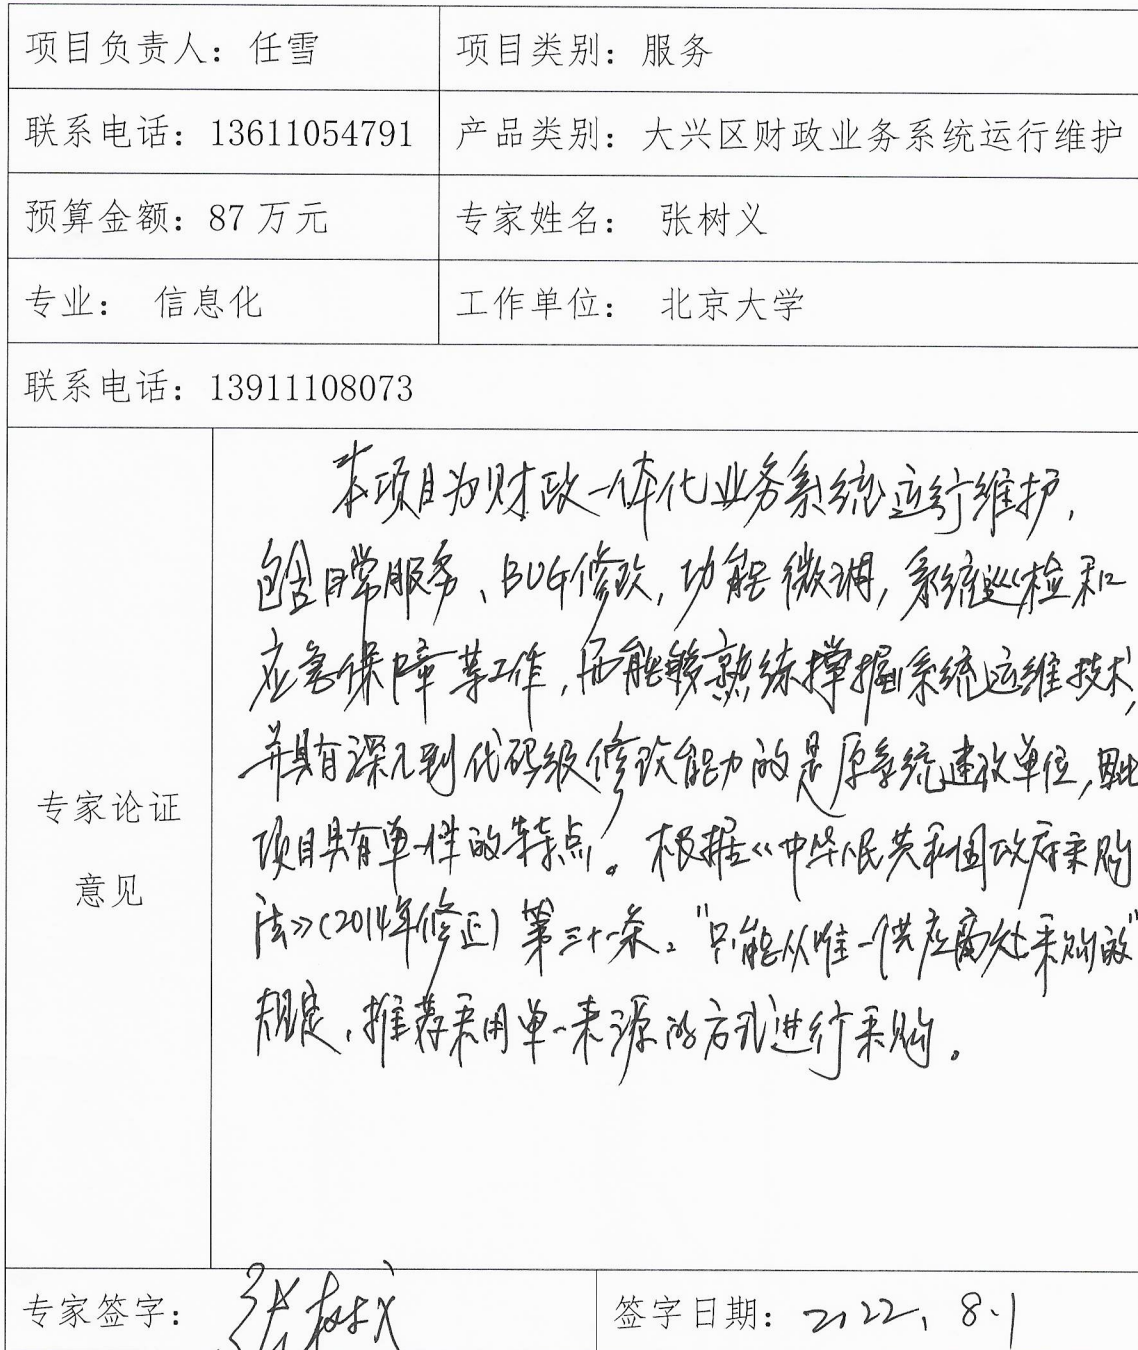 项目负责人：任雪 项目类别：服务
联系电话：13611054791 产品类别：大兴区财政业务系统运行维护
预算金额：87万元 专家姓名： 张树义
专业： 信息化 工作单位： 北京大学
联系电话：13911108073
专家论证
意见
本项目为财政一体化业务系统运行维护，
包含日常服务、BUG修改，功能微调，系统巡检和
应急保障等工作，而能够熟练掌握系统运维技术，
并具有深入到代码级修改能力的是原系统建设单位，因此
项目具有单一性的特点。根据《中华人民共和国政府采购
法》(2014年修正)第三十一条，"只能从唯一供应商处采购的"
规定，推荐采用单一来源的方式进行采购。
专家签字： 张树义 签字日期：2022、8.1